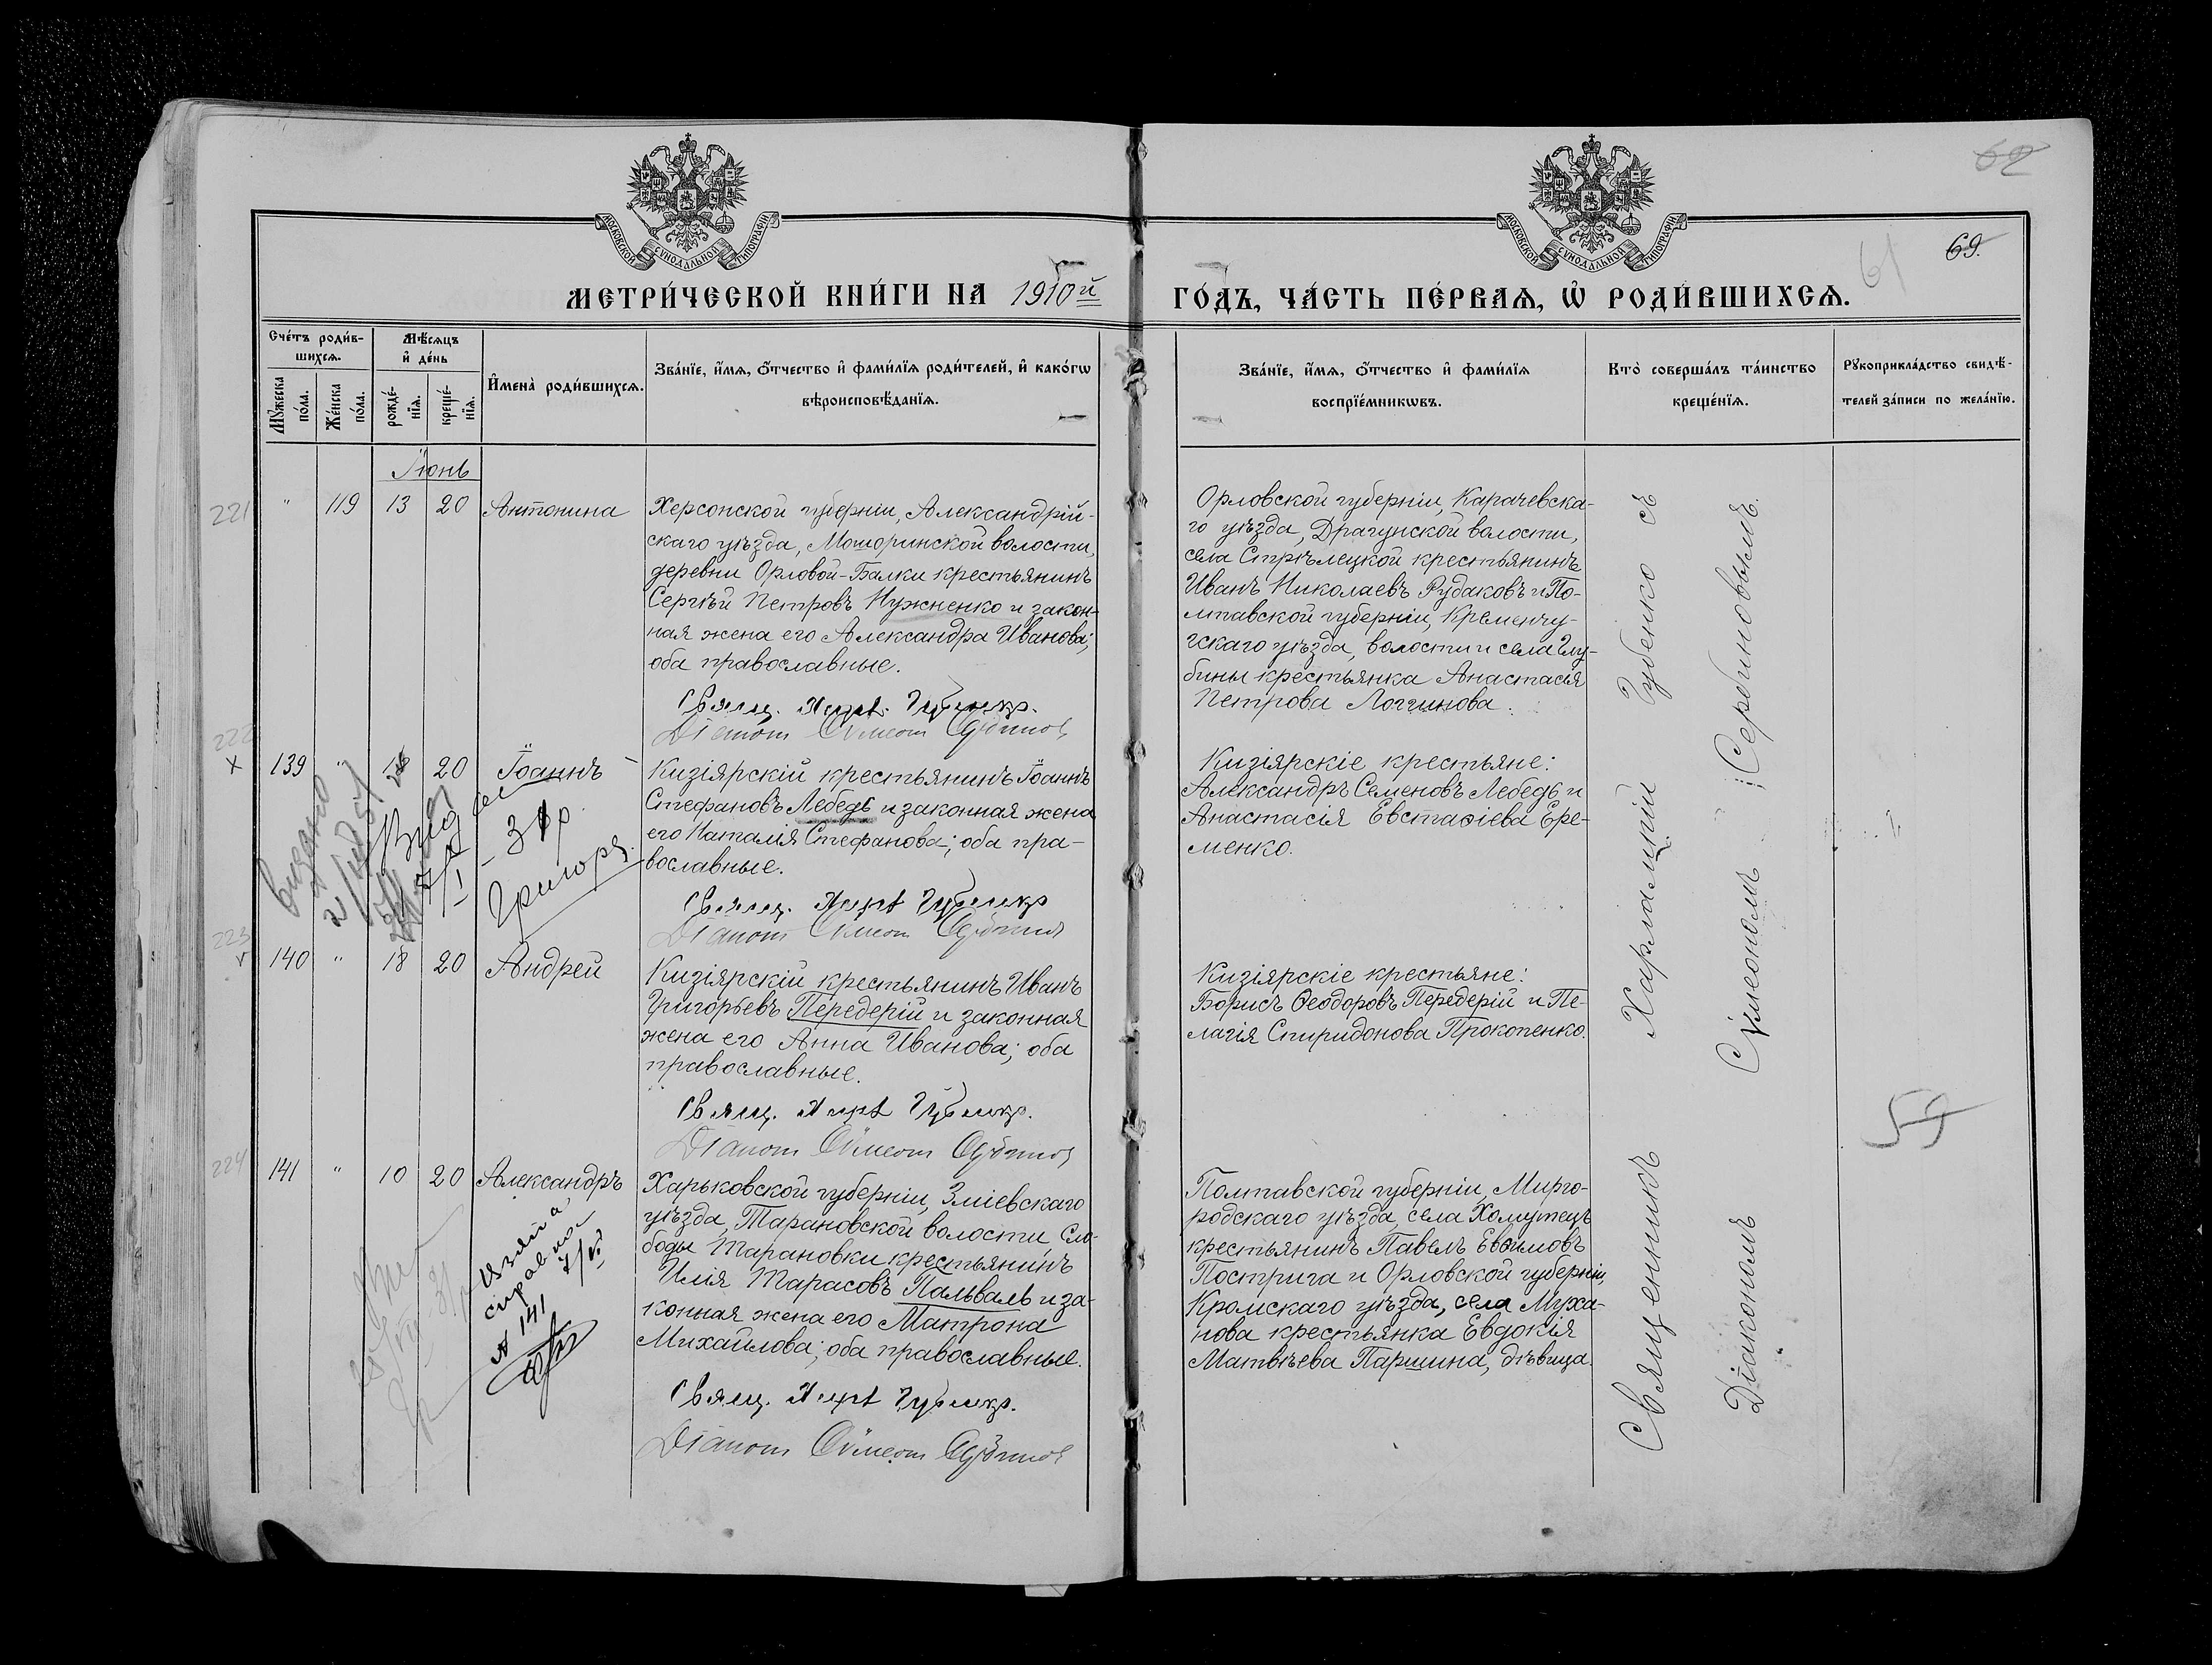 62
69.
61
МОСКОВСКОЙ СѴНОДАЛЬНОЙ ТИПОГРАФІИ
МОСКОВСКОЙ СѴНОДАЛЬНОЙ ТИПОГРАФІИ
МЕТРИ́ЧЕСКОЙ КНИ́ГИ НА 1910й
ГО́ДЪ, ЧА́СТЬ ПЕ́РВАѦ, Ѽ РОДИ́ВШИХСѦ.
Сче́тъ роди́в-
шихсѧ.
Мꙋ́жеска по́ла.
Же́нска по́ла.
Мѣ́сѧцъ
и҆ де́нь
рожде́-
нїѧ.
креще́-
нїѧ.
И҆мена̀ роди́вшихсѧ.
Зва́нїе, и҆́мѧ, ѻ҆́тчество и҆ фами́лїѧ роди́телей, и҆ како́гѡ
вѣроисповѣ́данїѧ.
Зва́нїе, и҆́мѧ, ѻ҆́тчество и҆ фами́лїѧ
воспрїе́мникѡвъ.
Кто̀ соверша́лъ та́инство
креще́нїѧ.
Рꙋкоприкла́дство свидѣ́-
телей за́писи по жела́нїю.
Іюнь
221 " 119 13 20 Антонина
Херсонской губерніи, Александрій-
скаго уѣзда, Мошоринской волости,
деревни Орловой-Балки крестьянинъ
Сергѣй Петровъ Нужненко и закон-
ная жена его Александра Иванова;
оба православные.
Свящ. Харл. Губенко.
Діаконъ Сѵмеонъ Сербиновъ
Орловской губерніи, Карачевска-
го уѣзда, Драгунской волости,
села Стрѣлецкой крестьянинъ
Иванъ Николаевъ Рудаковъ и По-
лтавской губерніи, Кременчу-
гскаго уѣзда, волости и села Глу-
бины крестьянка Анастасія
Петрова Логгинова.
222 139 " 20 Іоаннъ
выдано
Кизіярскій крестьянинъ Іоаннъ
Стефановъ Лебедь и законная жена
его Наталія Стефанова; оба пра-
вославные.
Свящ. Харл. Губенко
Діаконъ Сѵмеонъ Сербиновъ
Кизіярскіе крестьяне:
Александръ Семеновъ Лебедь и
Анастасія Евстаѳіева Ере-
менко.
223 140 " 18 20 Андрей
Кизіярскій крестьянинъ Иванъ
Григорьевъ Передерій и законная
жена его Анна Иванова; оба
православные.
Свящ. Харл. Губенко.
Діаконъ Сѵмеонъ Сербиновъ
Кизіярскіе крестьяне:
Борисъ Ѳеодоровъ Передерій и Пе-
лагія Спиридонова Прокопенко.
59
224 141 " 10 20 Александръ
№ 141
Харьковской губерніи, Зміевскаго
уѣзда, Тарановской волости Сло-
боды Тарановки крестьянинъ
Илія Тарасовъ Пальваль и за-
конная жена его Матрона
Михайлова; оба православные.
Свящ. Харл. Губенко.
Діаконъ Сѵмеонъ Сербиновъ
Полтавской губерніи, Мирго-
родскаго уѣзда, села Хомутецъ
крестьянинъ Павелъ Евѳимовъ
Пострига и Орловской губерніи,
Кромскаго уѣзда, села Муха-
нова крестьянка Евдокія
Матвѣева Паршина, дѣвица.
Священникъ Харлампій Губенко съ
Діакономъ Сѵмеономъ Сербиновымъ.